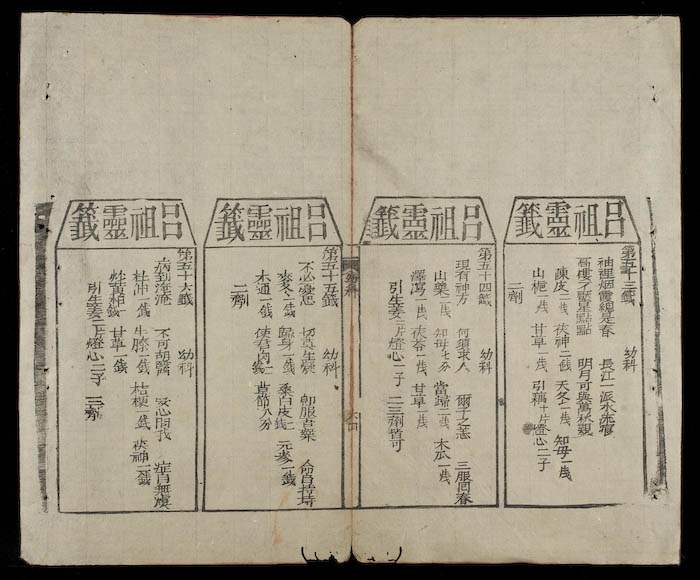 呂祖靈籤
第五十三籤 幼科
袖裡烟霞總是春 長江一派水流
高樓了義星點點 明月可與萬秋親
陳皮二戋 茯神二錢 天冬一戋 知母一戋
山梔一戋 甘草一戋 引藕十片 燈心二子
二劑
呂祖靈籤
第五十四籤 幼科
現有神方 何須求人 爾子之恙 三服回春
山藥二戋 知母七分 當歸一戋 木瓜一戋
澤瀉二戋 茯苓一戋 甘草一戋
引生姜三片 燈心二子 二三劑皆可
幼科
六四
呂祖靈籤
第五十五籤 幼科
不必憂思 切莫生 卽服吾藥 命自持
麥冬二錢 歸身一錢 桑白皮一錢 元參一錢
木通一錢 使君肉一錢 草節八分
二劑
呂祖靈籤
第五十六籤 幼科
病到淹淹 不可胡醫 安心問我 症自無虞
杜仲一錢 牛膝一錢 桔梗一錢 茯神一錢
炒黃柏一錢 甘草一錢
引生姜三片 燈心二子 三劑